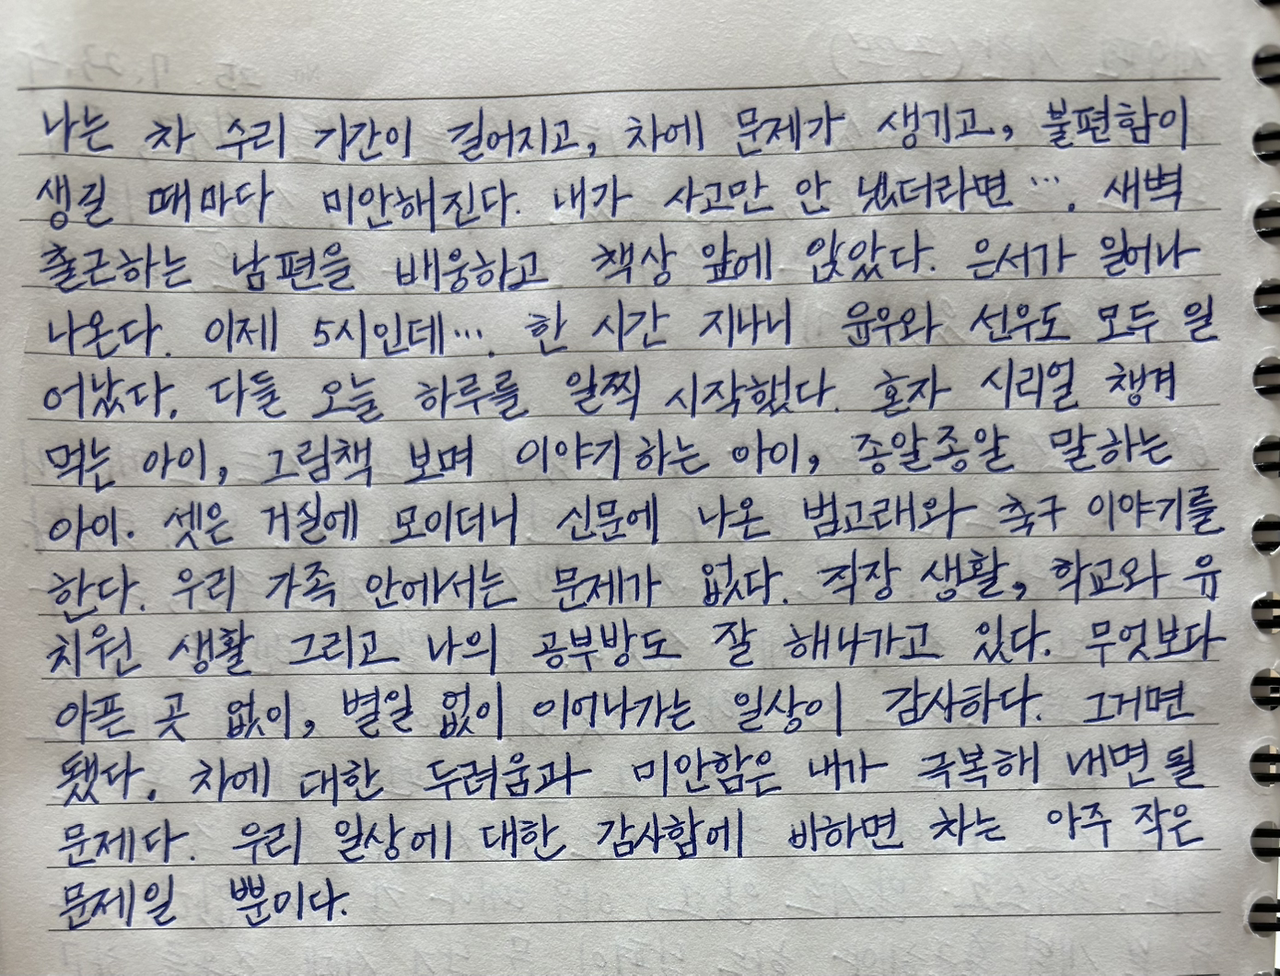 나는 차 수리 기간이 길어지고, 차에 문제가 생기고, 불편함이
생길 때마다 미안해진다. 내가 사고만 안 냈더라면…. 새벽
출근하는 남편을 배웅하고 책상 앞에 앉았다. 은서가 일어나
나온다. 이제 5시인데…. 한 시간 지나니 윤우와 선우도 모두 일
어났다. 다들 오늘 하루를 일찍 시작했다. 혼자 시리얼 챙겨
먹는 아이, 그림책 보며 이야기하는 아이, 종알종알 말하는
아이. 셋은 거실에 모이더니 신문에 나온 범고래와 축구 이야기를
한다. 우리 가족 안에서는 문제가 없다. 직장 생활, 학교와 유
치원 생활 그리고 나의 공부방도 잘 해나가고 있다. 무엇보다
아픈 곳 없이, 별일 없이 이어나가는 일상이 감사하다. 그거면
됐다. 차에 대한 두려움과 미안함은 내가 극복해 내면 될
문제다. 우리 일상에 대한 감사함에 비하면 차는 아주 작은
문제일 뿐이다.